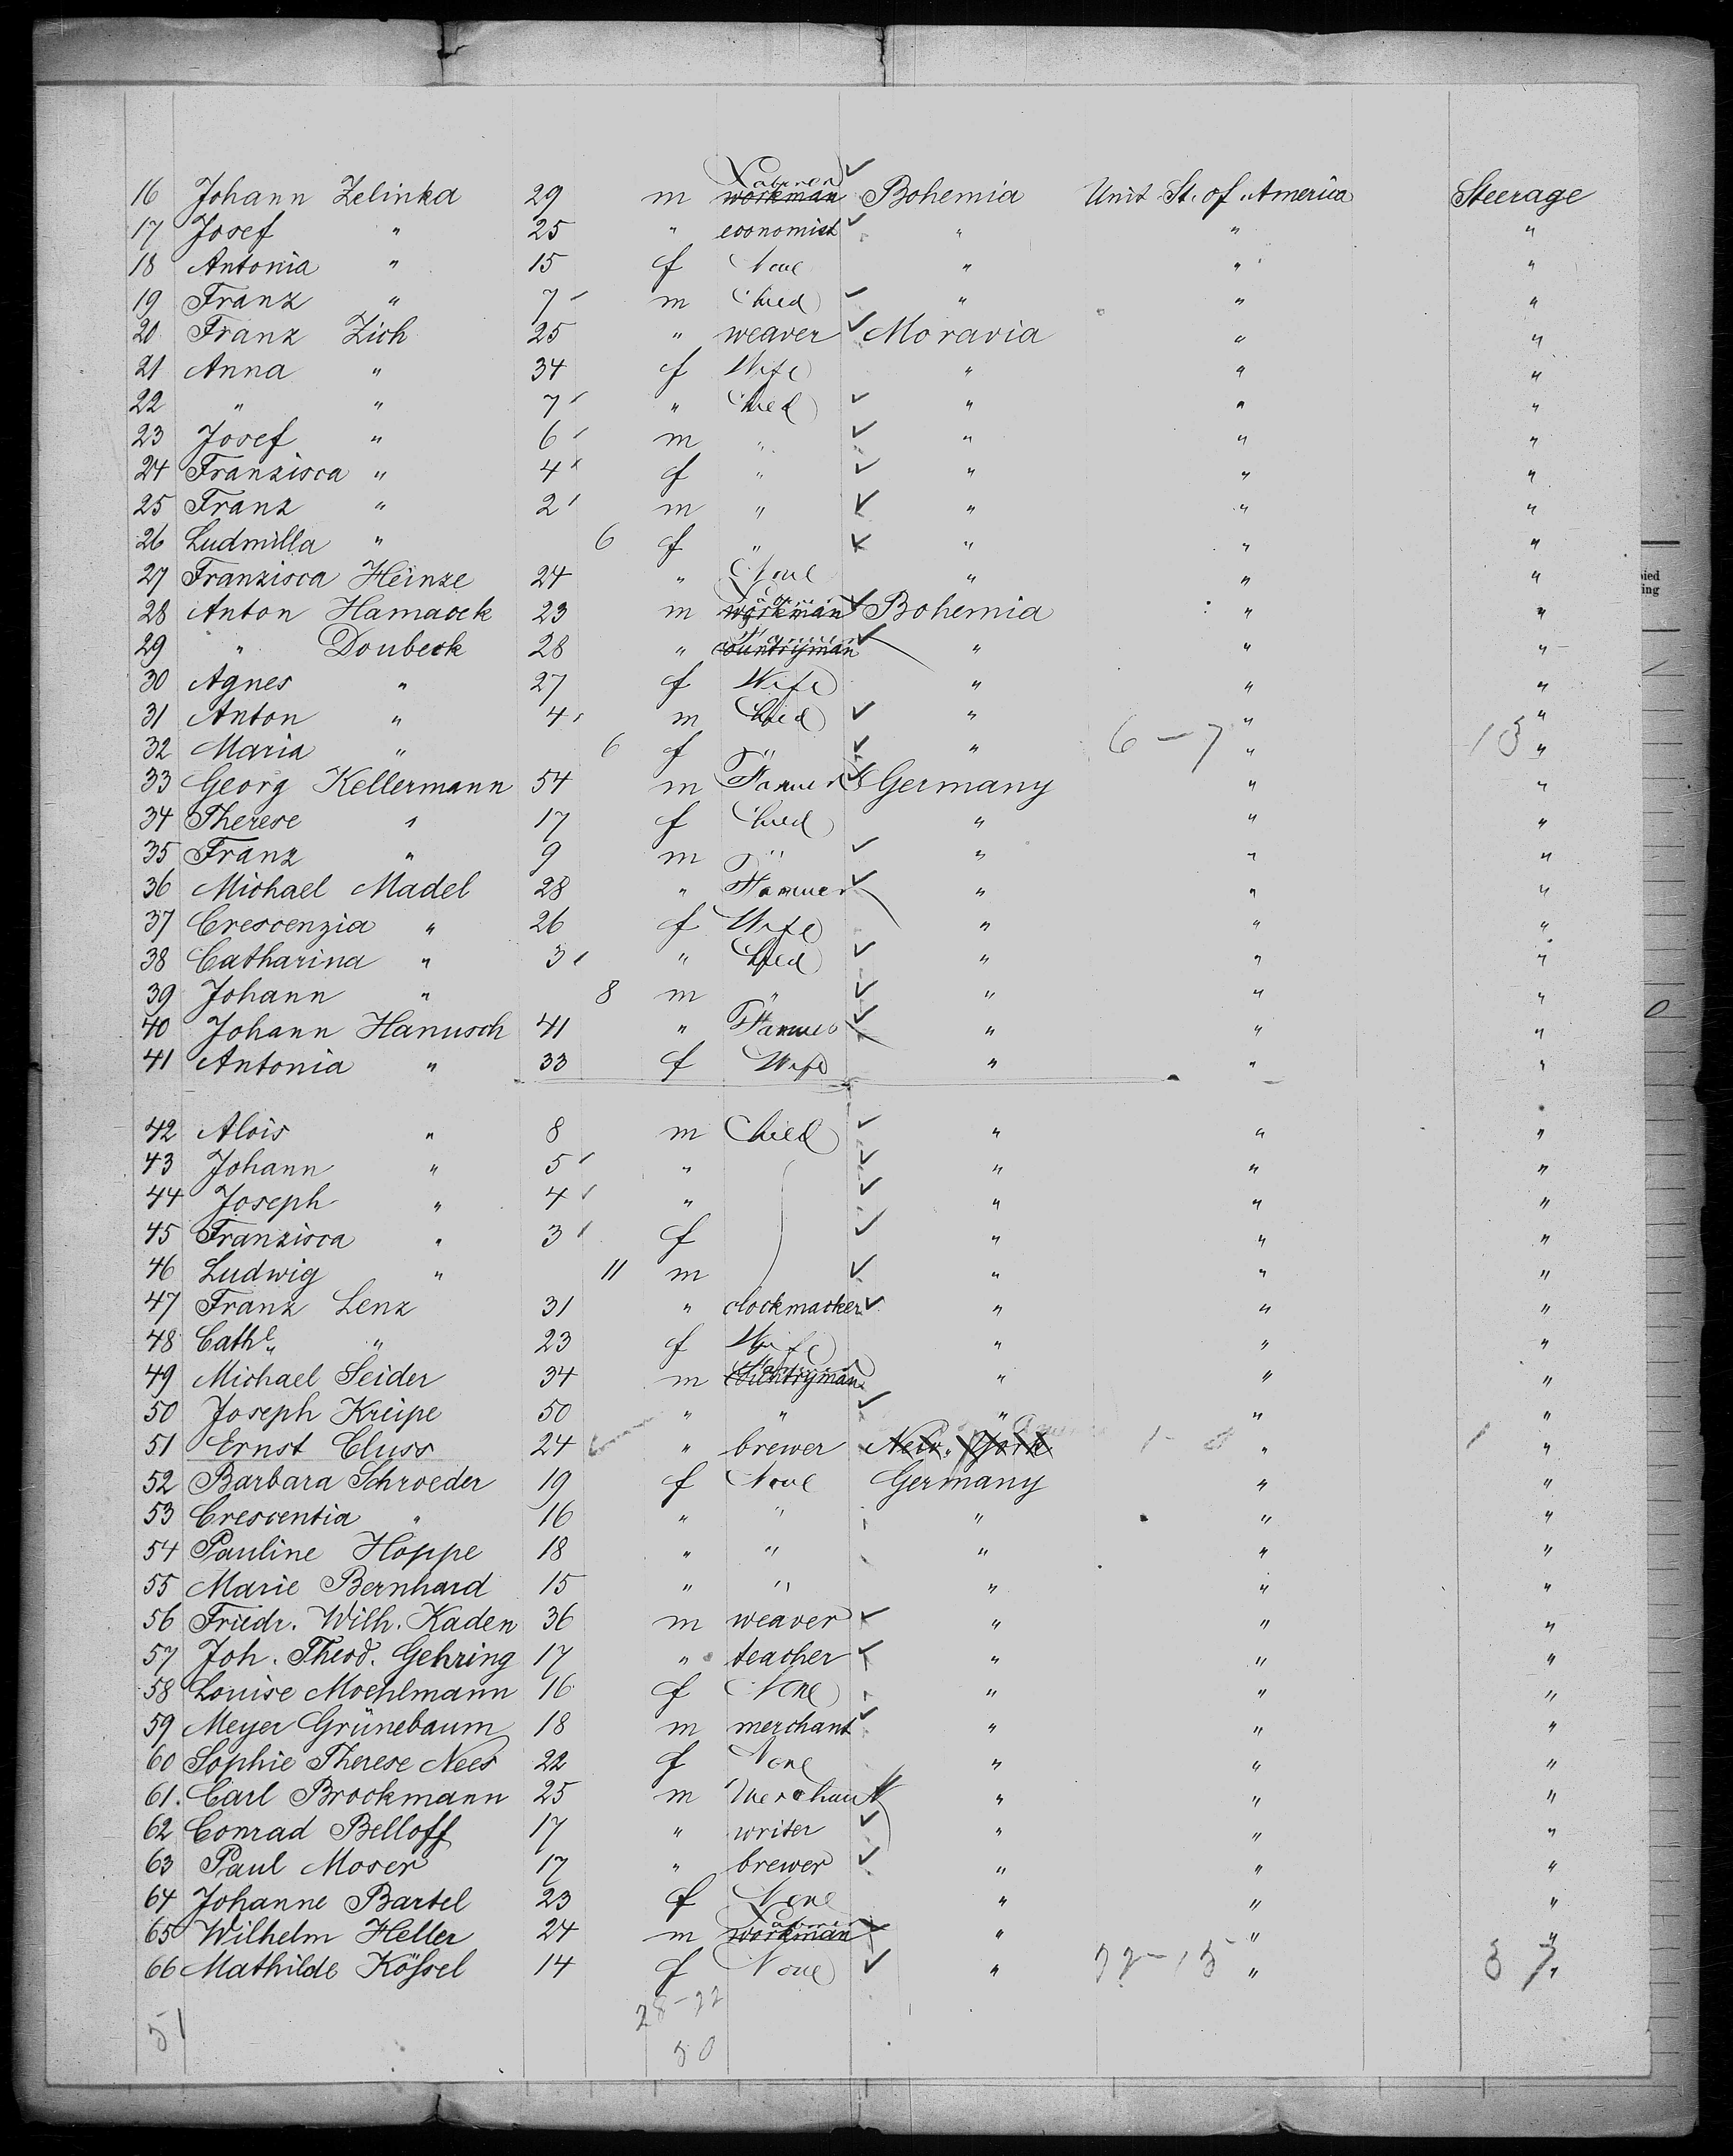 16 Johann Zelinka 29 m Laborer workman Bohemia Unit. St. of America Steerage
17 Josef " 25 " economist " " "
18 Antonia " 15 f None " " "
19 Franz " 7 m Child " " "
20 Franz Zich 25 " weaver Moravia " "
21 Anna " 34 f Wife " " "
22 " " 7 " Child " " "
23 Josef " 6 m " " " "
24 Franzisca " 4 f " " " "
25 Franz " 2 m " " " "
26 Ludmilla " 6 f " " " "
27 Franzisca Heinze 24 " None " " "
28 Anton Hamacek 23 m workman Bohemia " "
29 " Doubeck 28 " Farmer countryman " " "
30 Agnes " 27 f Wife " " "
31 Anton " 4 m Child " " "
32 Maria " 6 f " " 6-7 " 13 "
33 Georg Kellermann 54 m Farmer Germany " "
34 Therese " 17 f Child " " "
35 Franz " 9 m " " " "
36 Michael Madel 28 " Farmer " " "
37 Crescenzia " 26 f Wife " " "
38 Catharina " 3 " Child " " "
39 Johann " 8 m " " " "
40 Johann Hanusch 41 " Farmer " " "
41 Antonia " 33 f Wife " " "
42 Alois " 8 m Child " " "
43 Johann " 5 " " " "
44 Joseph " 4 " " " "
45 Franzisca " 3 f " " "
46 Ludwig " 11 m " " "
47 Franz Lenz 31 " clockmacker " " "
48 Cathe " 23 f Wife " " "
49 Michael Seider 34 m Farmer countryman " " "
50 Joseph Kreipe 50 " " " " "
51 Ernst Cluss 24 " brewer New York 1-0 " 1 "
52 Barbara Schroeder 19 f None Germany " "
53 Crescentia " 16 " " " " "
54 Pauline Hoppe 18 " " " " "
55 Marie Bernhard 15 " " " " "
56 Friedr. Wilh. Kaden 36 m weaver " " "
57 Joh. Theod. Gehring 17 " teacher " " "
58 Louise Moehlmann 16 f None " " "
59 Meyer Grünebaum 18 m merchant " " "
60 Sophie Therese Nees 22 f None " " "
61. Carl Brockmann 25 m Merchant " " "
62 Conrad Belloff 17 " writer " " "
63 Paul Moser 17 " brewer " " "
64 Johanne Bartel 23 f None " " "
65 Wilhelm Heller 24 m Laborer workman " " "
66 Mathilde Kößel 14 f None " 22-15 " 37 "
51 28-22
50